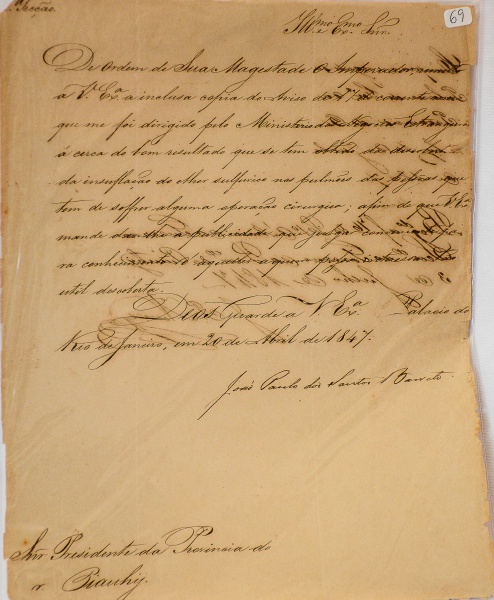 69
Secção.
Ill.mo e Ex.mo Snr.
De Ordem de Sua Magestade O Imperador, remetto
a V. Ex.a a inclusa copia do Aviso de 17 do corrente
que me foi dirigido pelo Ministerio dos Negocios Estrangeiros
á cerca do bom resultado que se tem obtido da descoberta
da insuflação do ether sulfurico nos pulmões das pessoas que
tem de soffrer alguma operação cirurgica; afim de que V. Ex.a
mande dar-lhe a publicidade que julgar conveniente pa-
ra conhecimento
util descoberta.
Deos Guarde a V. Ex.a Palacio do
Rio de Janeiro, em 20 de Abril de 1847.
José Paulo dos Santos Barreto
Snr. Presidente da Provincia do
Piauhy.